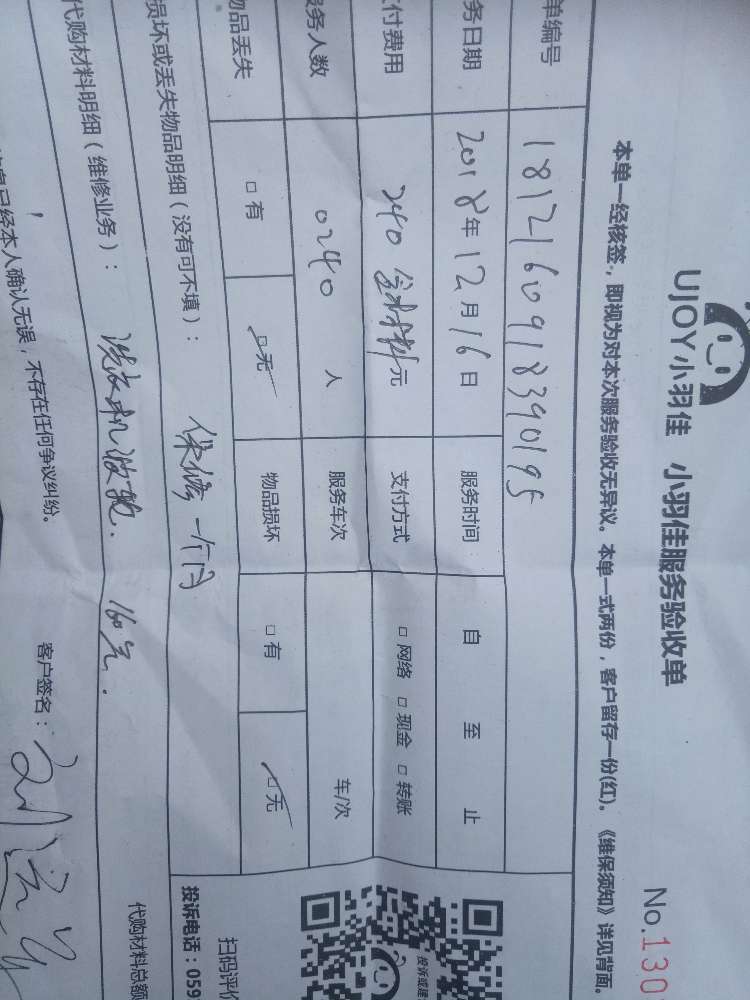 UJOY小羽佳 小羽佳服务验收单
No.130
本单一经核签，即视为对本次服务验收无异议。本单一式两份，客户留存一份(红)。《维保须知》详见背面。
单编号 1812160918390195
务日期 2018年12月16日 服务时间 自 至 止
付费用 240 含材料元 支付方式 □网络 □现金 □转账
服务人数 0240 人 服务车次 车/次
物品丢失 □有 □无 物品损坏 □有 □无
损坏或丢失物品明细（没有可不填）： 保修一个月
代购材料明细（维修业务）： 洗衣机波轮. 160元.
代购材料总额
已经本人确认无误，不存在任何争议纠纷。
客户签名：
投诉或建
扫码评价
投诉电话：059